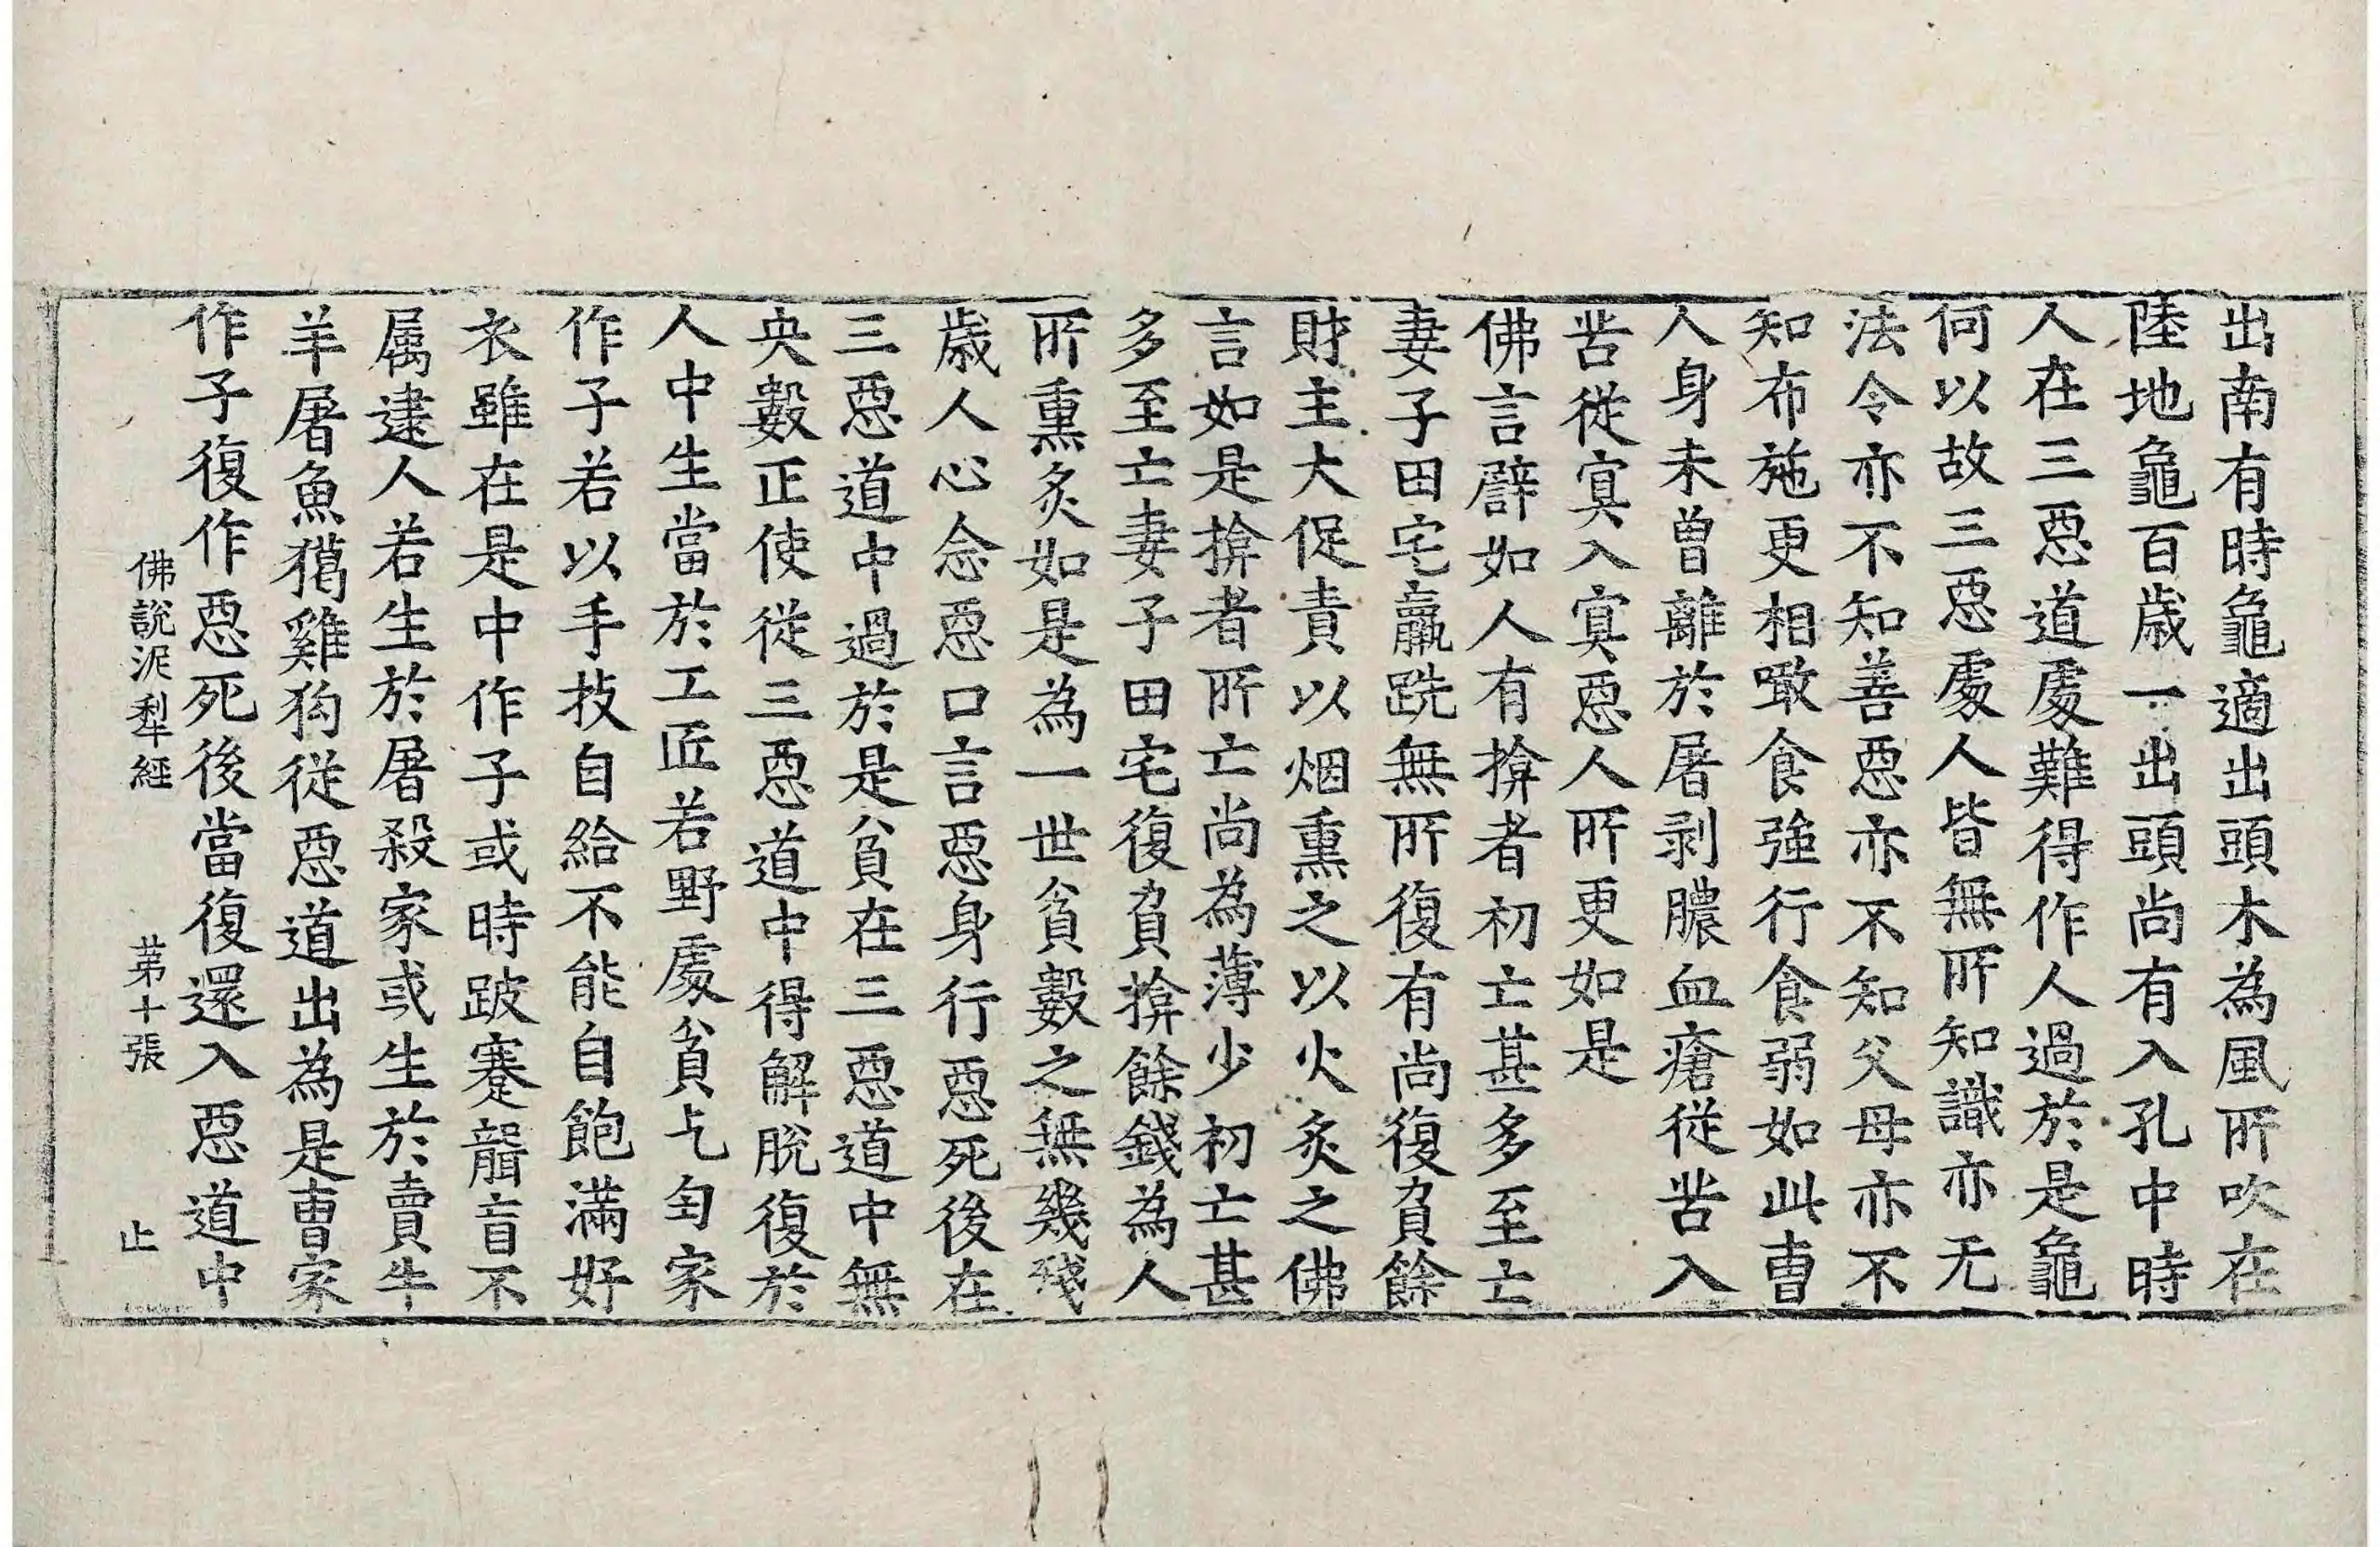 出南有時龜適出頭木為風所吹在
陸地龜百歲一出頭尚有入孔中時
人在三惡道處難得作人過於是龜
何以故三惡處人皆無所知識亦无
法令亦不知善惡亦不知父母亦不
知布施更相噉食強行食弱如此曺
人身未曾離於屠剥膿血瘡従苦入
苦従冥入冥惡人所更如是
佛言譬如人有揜者初亡甚多至亡
妻子田宅羸跣無所復有尚復負餘
財主大促責以烟熏之以火炙之佛
言如是揜者所亡尚為薄少初亡甚
多至亡妻子田宅復負揜餘錢為人
所熏炙如是為一世貧數之無幾殘
歲人心念惡口言惡身行惡死後在
三惡道中過於是貧在三惡道中無
央數正使従三惡道中得解脫復於
人中生當於工匠若野處貧乞匃家
作子若以手技自給不能自飽滿好
衣雖在是中作子或時跛蹇聾盲不
属逮人若生於屠殺家或生於賣牛
羊屠魚獦雞狗従惡道出為是曺家
作子復作惡死後當復還入惡道中
佛說泥犁經 苐十張 止